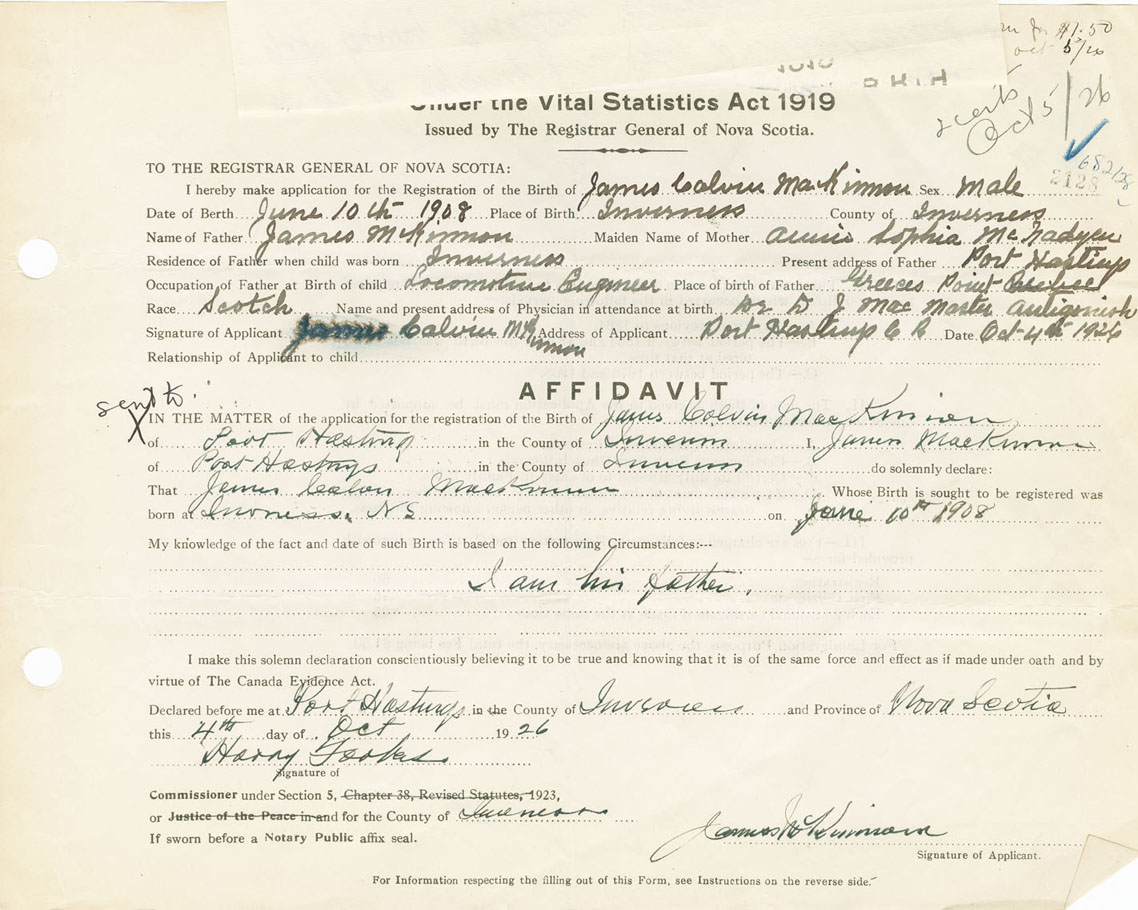 $1.50
oct 5/26
Oct 5/26
2128
Under the Vital Statistics Act 1919
Issued by The Registrar General of Nova Scotia.
TO THE REGISTRAR GENERAL OF NOVA SCOTIA:
I hereby make application for the Registration of the Birth of James Calvin MacKinnon Sex Male
Date of Berth June 10th 1908 Place of Birth Inverness County of Inverness
Name of Father James McKinnon Maiden Name of Mother Annie Sophia
Residence of Father when child was born Inverness Present address of Father Port Hastings
Occupation of Father at Birth of child Locomotive Engineer Place of birth of Father Point
Race Scotch Name and present address of Physician in attendance at birth Dr D J MacMaster Antigonish
Signature of Applicant James Calvin McKinnon Address of Applicant Port Hastings C B Date Oct 4th 1926
Relationship of Applicant to child
AFFIDAVIT
sent to
IN THE MATTER of the application for the registration of the Birth of James Colvin MacKinnon
of Port Hastings in the County of Inverness I, James MacKinnon
of Port Hastings in the County of Inverness do solemnly declare:
That James Calvin MacKinnon Whose Birth is sought to be registered was
born at Inverness, NS on June 10th 1908
My knowledge of the fact and date of such Birth is based on the following Circumstances:---
I am his father.
I make this solemn declaration conscientiously believing it to be true and knowing that it is of the same force and effect as if made under oath and by
virtue of The Canada Evidence Act.
Declared before me at Port Hastings in the County of Inverness and Province of Nova Scotia
this 4th day of Oct 1926
Harry
Signature of
Commissioner under Section 5, Chapter 38, Revised Statutes, 1923,
or Justice of the Peace in and for the County of Inverness
If sworn before a Notary Public affix seal.
James McKinnon
Signature of Applicant.
For Information respecting the filling out of this Form, see Instructions on the reverse side.